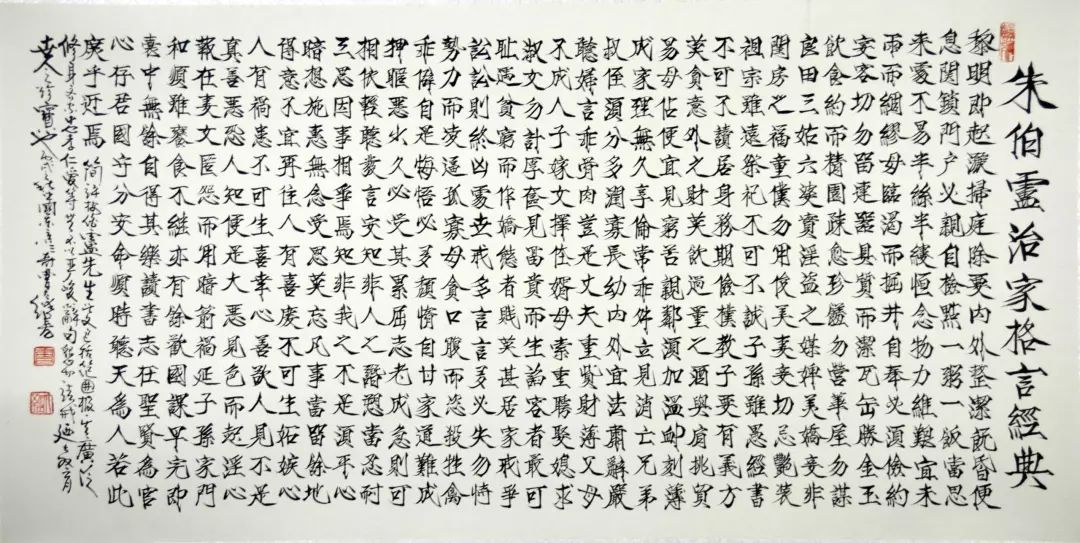 朱伯靈治家格言經典
黎明即起洒掃庭除要内外整潔既昏便
息関鎖門户必親自檢點一粥一飯當思
来處不易半絲半縷恒念物力維艱宜未
雨而綢繆毋臨渴而掘井自奉必須儉約
宴客切勿留連器具質而潔瓦缶勝金玉
飲食約而精園蔬愈珍饈勿營華屋勿謀
良田三姑六婆實淫盗之媒婢美嬌妾非
閨房之福童僕勿用俊美妻妾切忌艷装
祖宗雖遠祭祀不可不誠子孫雖愚經書
不可不讀居身務期儉樸教子要有義方
莫貪意外之財莫飲過量之酒與肩挑貿
易毋佔便宜見窮苦親鄰須加温卹刻薄
成家理無久享倫常乖舛立見消亡兄弟
叔侄須分多潤寡長幼内外宜法肅辭嚴
聽婦言乖骨肉豈是丈夫重貲財薄父母
不成人子嫁女擇佳婿毋索重聘娶媳求
淑女勿計厚奩見富貴而生諂容者最可
耻遇貧窮而作驕態者賤莫甚居家戒爭
訟訟則終凶處世戒多言言多必失勿恃
勢力而凌逼孤寡毋貪口腹而恣殺牲禽
乖僻自是悔悟必多頹惰自甘家道難成
狎暱惡少久必受其累屈志老成急則可
相依輕聽發言安知非人之譖愬當忍耐
三思因事相爭焉知非我之不是須平心
暗想施惠無念受恩莫忘凡事當留餘地
得意不宜再往人有喜慶不可生妬嫉心
人有禍患不可生喜幸心善欲人見不是
真善惡恐人知便是大惡見色而起淫心
報在妻女匿怨而用暗箭禍延子孫家門
和順雖饔食不継亦有餘歡國課早完即
囊中無餘自得其樂讀書志在聖賢為官
心存君國守分安命順時聽天為人若此
庶乎近焉